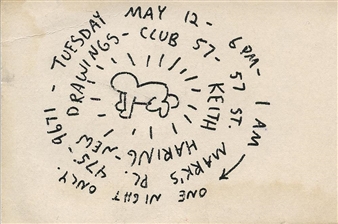 KEITH HARING - NEW DRAWINGS - CLUB 57 - 57 ST. MARK'S PL. 475-9671 - TUESDAY MAY 12 - 6PM - 1AM ONE NIGHT ONLY.